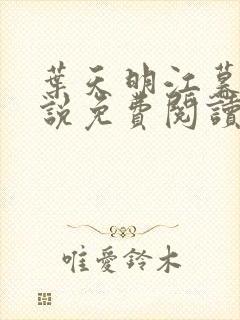 葉天明江慕
說免費閱讀
唯愛鈴木